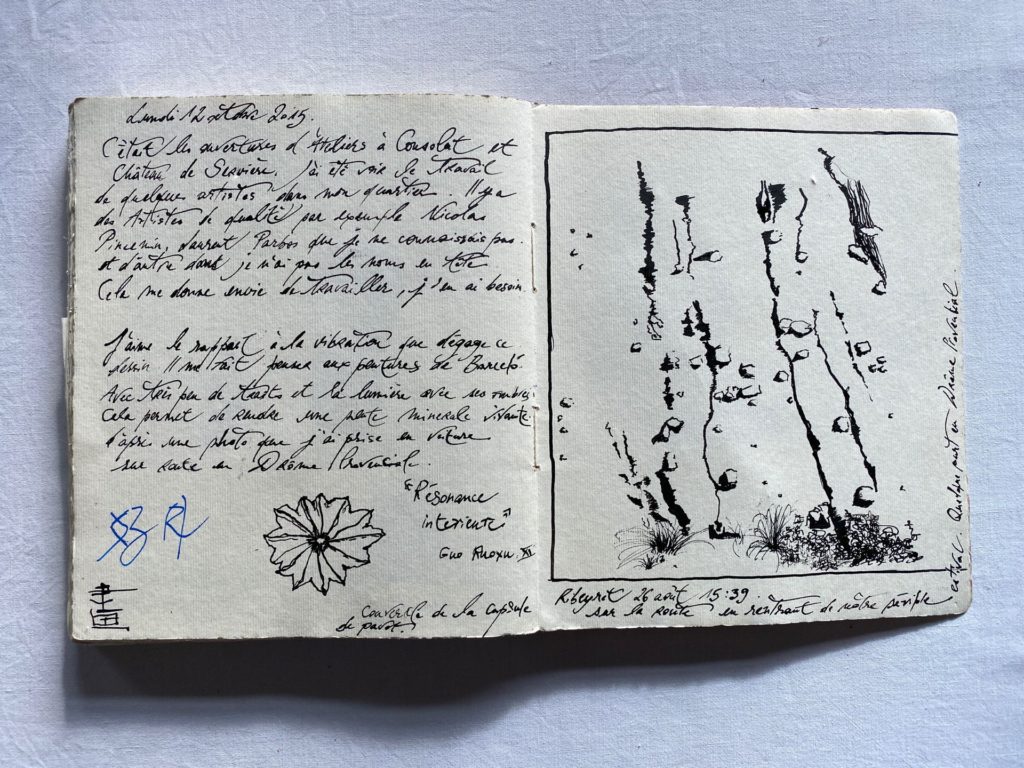 Lundi 12 octobre 2015.
C'était les ouvertures d'Ateliers à Consolat et
Château de Servière. J'ai été voir le travail
de quelques artistes dans mon quartier. Il y a
des Artistes de qualité par exemple Nicolas
Pincemin, Laurent Parbos que je ne connaissais pas.
et d'autre dont je n'ai pas les noms en tête
Cela me donne envie de travailler, j'en ai besoin.
J'aime le rapport à la vibration que dégage ce
dessin Il me fait penser aux peintures de Barceló.
Avec très peu de traits et la lumière avec ses ombres
Cela permet de rendre une pente minerale vivante
d'après une photo que j'ai prise en voiture
sur route en Drôme Provençale.
"Résonance
interieure"
Guo Ruoxu. XI
couvercle de la capsule
de pavot.
Ribeyret 26 août 15:39.
sur la route en rentrant de nôtre périple
estival. Quelque part en Drôme Provençale